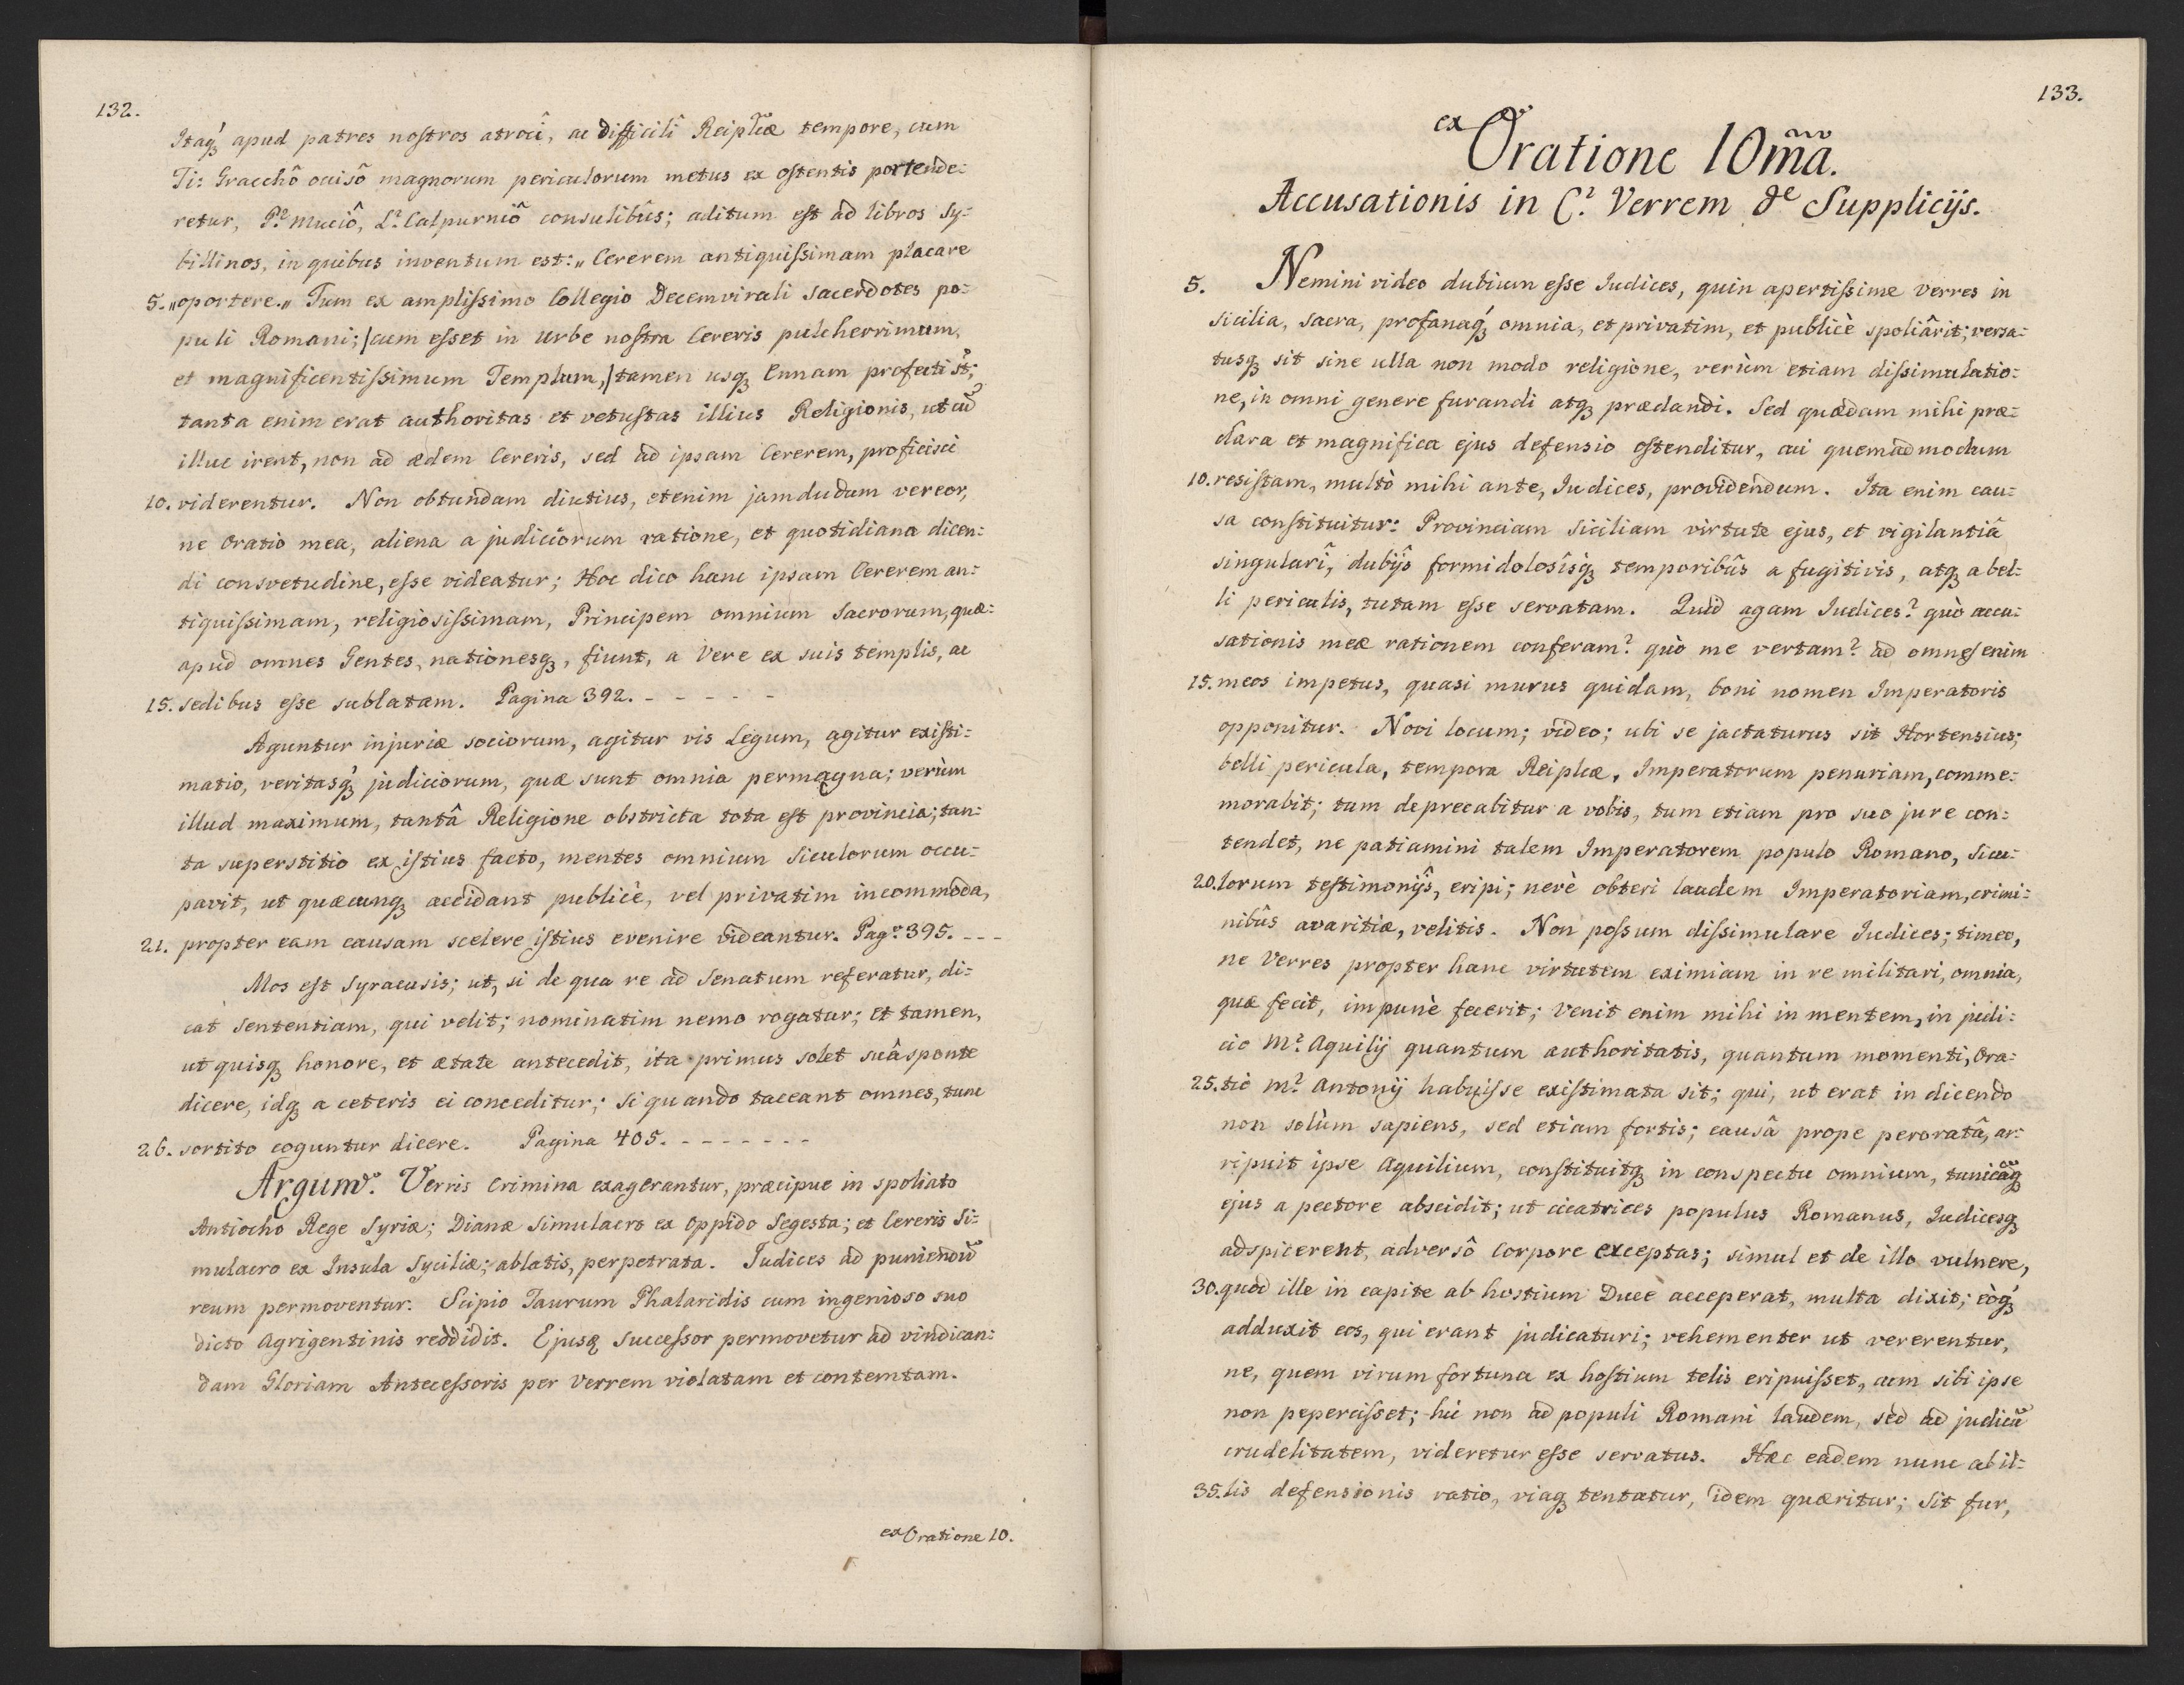 132.
Itaq́ꝫ apud patres nostros atrocî, ac difficilî Reiplicæ tempore, cum
Ti: Gracchô occisô magnorum periculorum metus ex ostentis portende:
retur, P.² Muciô, L.² Calpurniô consulibûs; aditum est ad libros Sy:
billinos, in quibus inventum est: „Cererem antiquissimam placare
5. „oportere.„ Tum ex amplissimo Collegio Decemvirali Sacerdotes po:
puli Romani; /cum esset in Urbe nostra Cereris pulcherrimum,
et magnificentissimum Templum,/ tamen usqꝫ Ennam profecti st̃;
tanta enim erat authoritas et vetustas illius Religionis, ut cũ
illuc irent, non ad ædem Cereris, sed ad ipsam Cererem, proficisci
10. viderentur. Non obtundam diutius, etenim jamdudum vereor,
ne Oratio mea, aliena a judiciorum ratione, et quotidiana dicen:
di consvetudine, esse videatur; Hoc dico hanc ipsam Cererem an:
tiquissimam, religiosissimam, Principem omnium Sacrorum, quæ:
apud omnes Gentes, nationesqꝫ, fiunt, a Vere ex suis templis, ac
15. sedibus esse sublatam. Pagina 392. - - - - -
Aguntur injuriæ sociorum, agitur vis Legum, agitur existi:
matio, veritasq́ꝫ judiciorum, quæ sunt omnia permagna; verùm
illud maximum, tantâ Religione obstricta tota est provincia; tan:
ta superstitio ex istius facto, mentes omnium Siculorum occu:
pavit, ut quæcunqꝫ accidant publicè, vel privatim incommoda,
21. propter eam causam scelere istius evenire videantur. Pagª 395. - - -
Mos est Syracusis; ut, si de qua re ad Senatum referatur, di:
cat Sententiam, qui velit; nominatim nemo rogatur; et tamen,
ut quisqꝫ honore, et ætate antecedit, ita primus solet suâ sponte
dicere, idqꝫ a ceteris ei conceditur; si quando taceant omnes, tunc
26. sortito coguntur dicere. Pagina 405. - - - - - - -
Argumᵒ. Verris Crimina exagerantur, præcipue in spoliato
Antiocho Rege Syriæ; Dianæ Simulacro ex Oppido Segesta; et Cereris Si:
mulacro ex Insula Syciliæ; ablatis, perpetrata. Judices ad puniendũ
reum permoventur. Scipio Taurum Phalaridis cum ingenioso suo
dicto Agrigentinis reddidit. Ejusqꝫ Successor permovetur ad vindican:
dam Gloriam Antecessoris per Verrem violatam et contemtam.
ex Oratione 10.
133.
ex Oratione 10mã.
Accusationis in C.² Verrem de Supplicijs.
5. Nemini video dubium esse Judices, quin apertissime Verres in
Sicilia, sacra, profanaq́ꝫ omnia, et privatim, et publicè spoliârit; versa:
tusqꝫ sit sine ulla non modo religione, verùm etiam dissimulatio:
ne, in omni genere furandi atqꝫ prædandi. Sed quædam mihi præ:
clara et magnifica ejus defensio ostenditur, cui quemadmodum
10. resistam, multò mihi ante, Judices, providendum. Ita enim cau:
sa constituitur: Provinciam Siciliam virtute ejus, et vigilantiâ
singularî, dubijs formidolosîsq́ꝫ temporibûs a fugitivis, atqꝫ a bel:
li periculis, tutam esse servatam. Quid agam Judices? quò accu:
sationis meæ rationem conferam? quò me vertam? ad omnes enim
15. meos impetus, quasi murus quidam, boni nomen Imperatoris
opponitur. Novi locum; video; ubi se jactaturus sit Hortensius;
belli pericula, tempora Reiplicæ, Imperatorum penuriam, comme:
morabit; tum deprecabitur a vobis, tum etiam pro suo jure con:
tendet, ne patiamini talem Imperatorem populo Romano, Sicu:
20. lorum testimonijs, eripi; nevè obteri laudem Imperatoriam, crimi:
nibûs avaritiæ, velitis. Non possum dissimulare Judices; timeo,
ne Verres propter hanc virtutem eximiam in re militari, omnia,
quæ fecit, impunè fecerit; Venit enim mihi in mentem, in judi:
cio M.² Aquilij quantum authoritatis, quantum momenti, Ora:
25. tio M.² Antonij habuisse existimata sit; qui, ut erat in dicendo
non solùm sapiens, sed etiam fortis; causâ prope peroratâ, ar:
ripuit ipse Aquilium, constituitqꝫ in conspectu omnium, tunicãqꝫ
ejus a pectore abscidit; ut cicatrices populus Romanus, Judicesqꝫ
adspicerent, adversô Corpore exceptas; simul et de illo vulnere,
30. quod ille in capite ab hostium Duce acceperat, multa dixit; eòq́ꝫ
adduxit eos, qui erant judicaturi; vehementer ut vererentur,
ne, quem virum fortuna ex hostium telis eripuisset, cum sibi ipse
non pepercisset; hic non ad populi Romani laudem, sed ad judicũ
crudelitatem, videretur esse servatus. Hæc eadem nunc ab il:
35. lis defensionis ratio, viaqꝫ tentatur, idem quæritur; Sit fur,